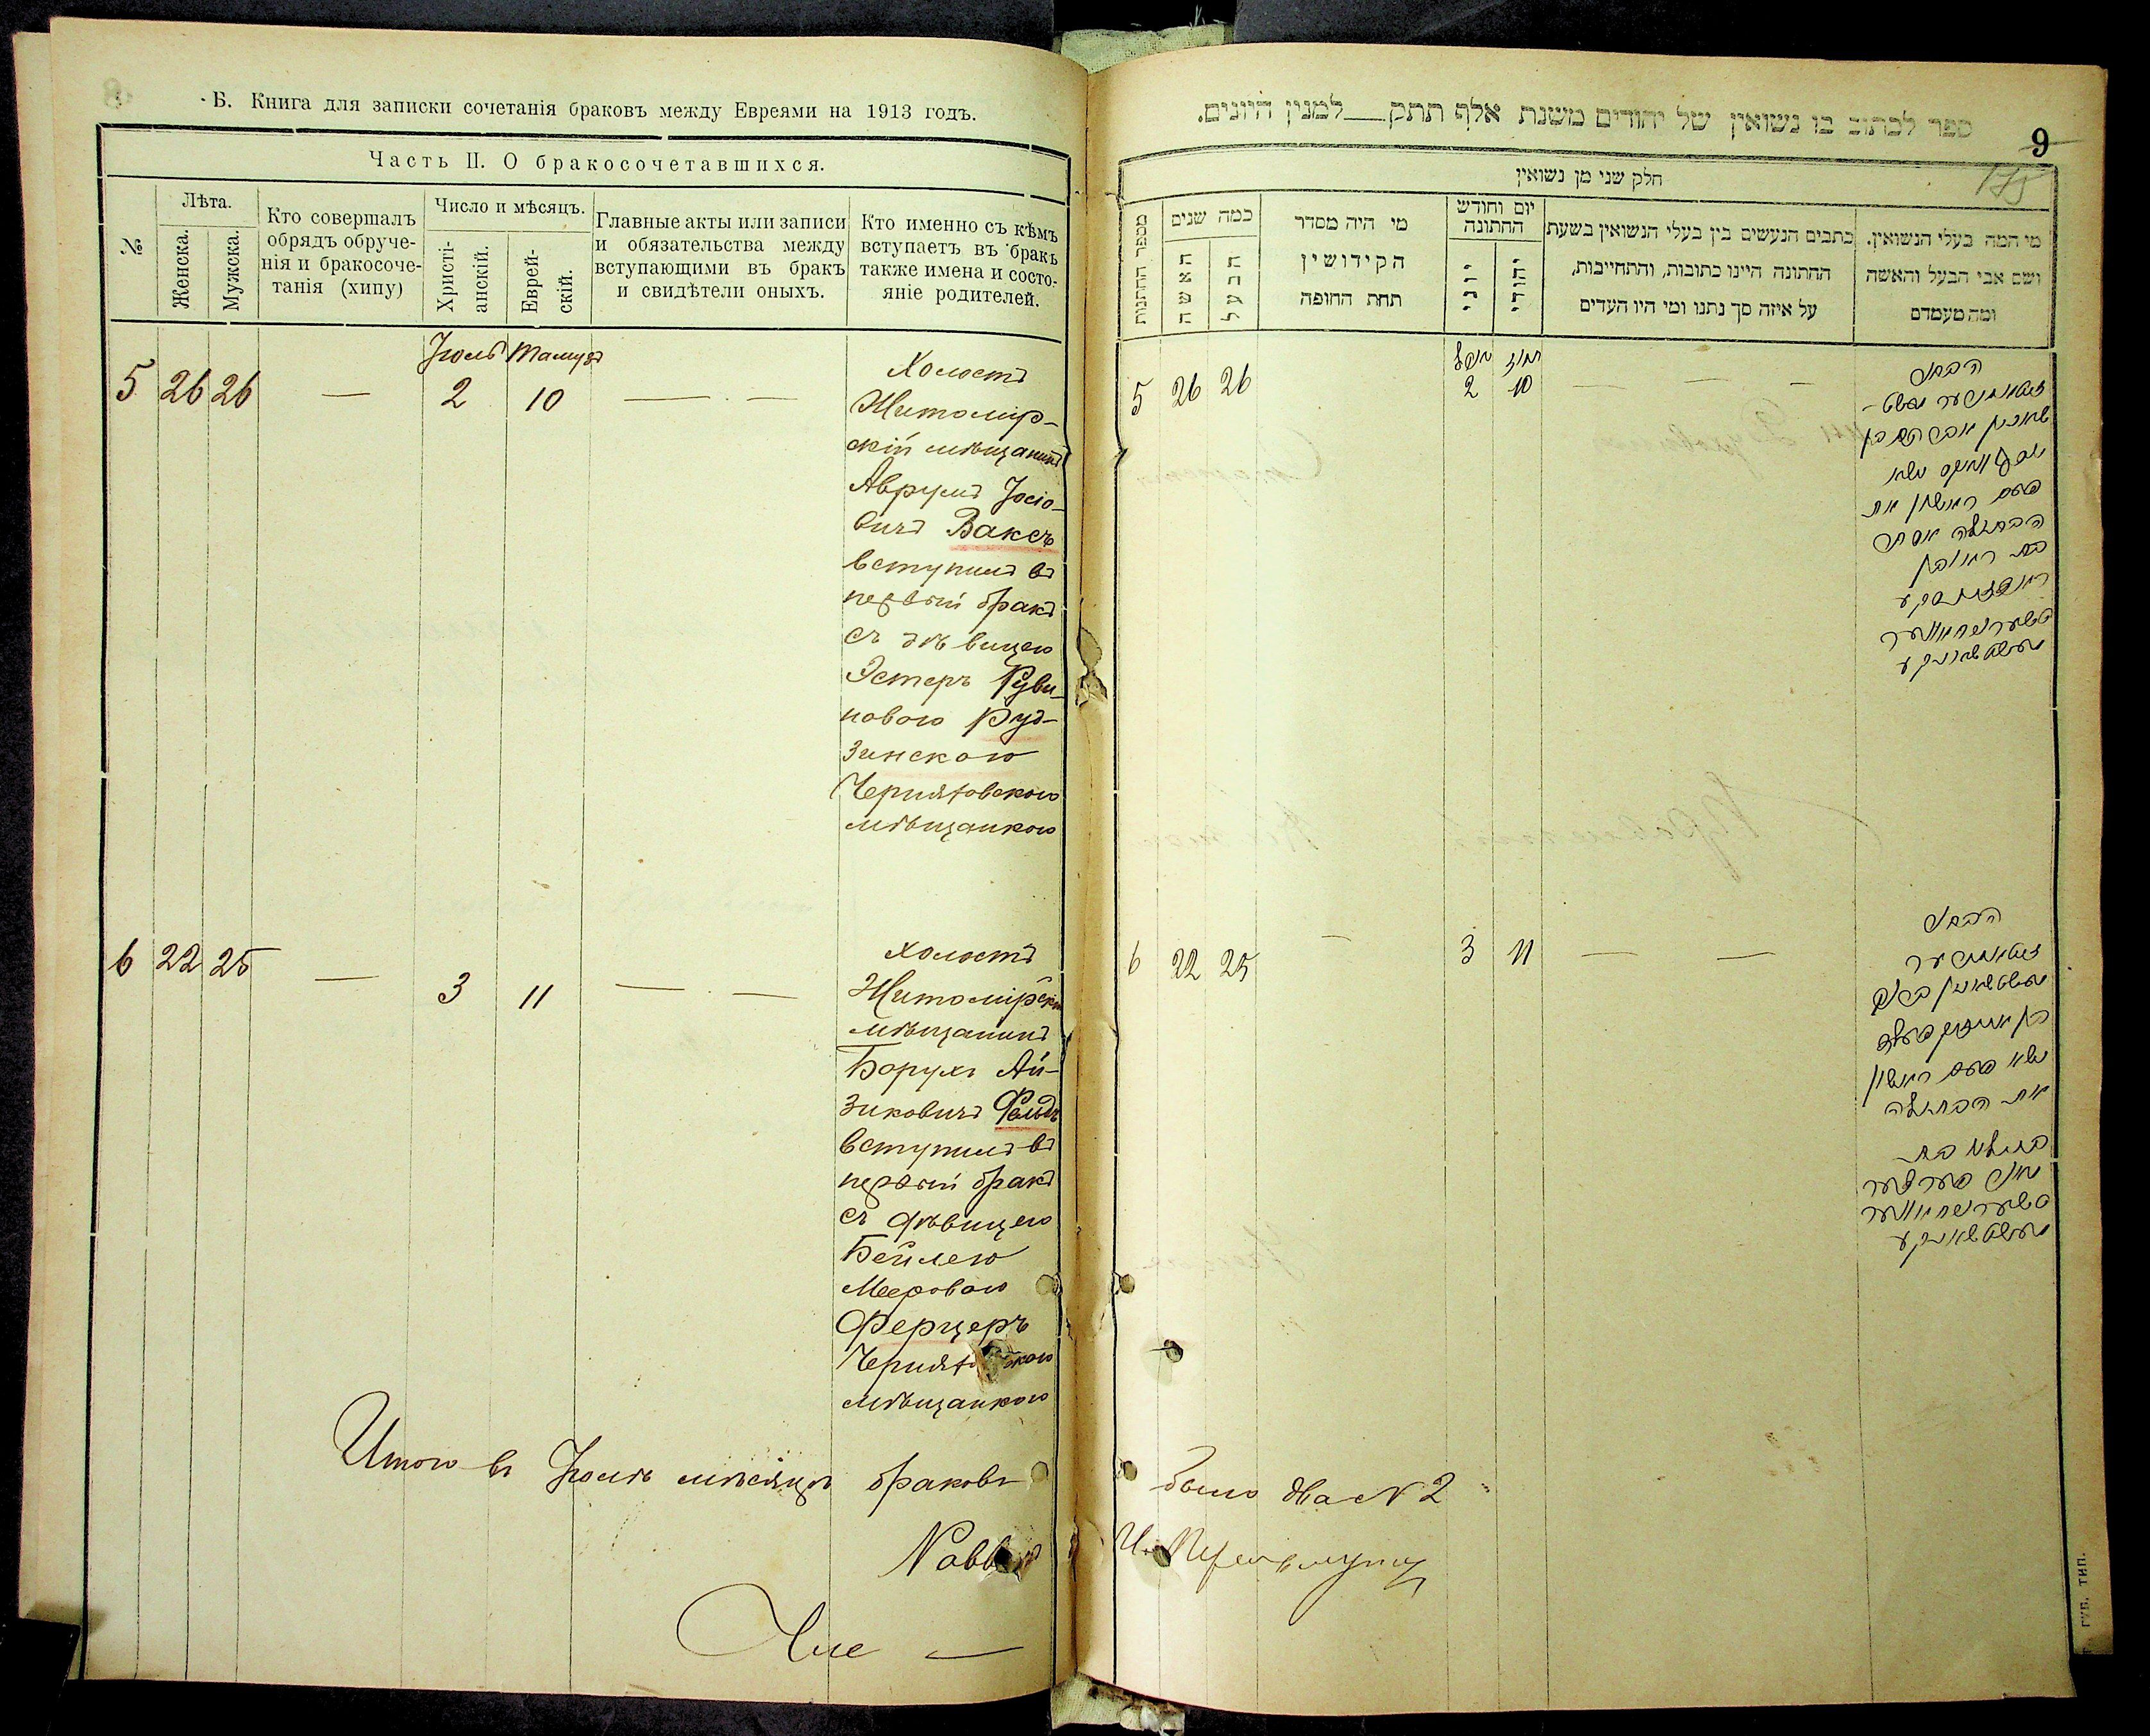 Б. Книга для записки сочетанія браковъ между Евреями на 1913 годъ.
Часть II. О бракосочетавшихся.
№
Лѣта.
Женска.
Мужска.
Кто совершалъ
обрядъ обруче-
нія и бракосоче-
танія (хипу)
Число и мѣсяцъ.
Христі-
анскій.
Еврей-
скій.
Главные акты или записи
и обязательства между
вступающими въ бракъ
и свидѣтели оныхъ.
Кто именно съ кѣмъ
вступаетъ въ бракъ
также имена и состо-
яніе родителей.
Іюль Тамузъ
5 26 26 — 2 10 — . —
Холостъ
Житомір-
скій мѣщанинъ
Аврумъ Іосіо-
вичъ Ваксъ
вступилъ въ
первый бракъ
съ дѣвицею
Эстеръ Руви-
новою Руд-
зинскою
Черняховскою
мѣщанкою
6 22 25 — 3 11 — . —
холостъ
Житомірскій
мѣщанинъ
Борухъ Ай-
зиковичъ Фельдъ
вступилъ въ
первый бракъ
съ дѣвицею
Бейлею
Мееровою
Ферцеръ
мѣщанкою
Итого въ Іюлѣ мѣсяцѣ браковъ
ספר לכתוב בו נשואין של יהודים משנת אלף תתק למנין היונים.
9
175
חלק שני מן נשואין
מספר החתונות
כמה שנים
האשה
הבעל
מי היה מסדר
הקידושין
תחת החופה
יום וחודש
החתונה
יוני
יהודי
כתבים הנעשים בין בעלי הנשואין בשעת
החתונה היינו כתובות, והתחייבות,
על איזה סך נתנו ומי היו העדים
מי המה בעלי הנשואין.
ושם אבי הבעל והאשה
ומה מעמדם
5 26 26 2 10 — — —
הבחור
פעם ראשון את
הבתולה אסתר
בת ראובן
6 22 25 — 3 11 — —
הבחור
נשא פעם ראשון
את הבתולה
ביילא בת
было два N 2
ГУБ. ТИП.